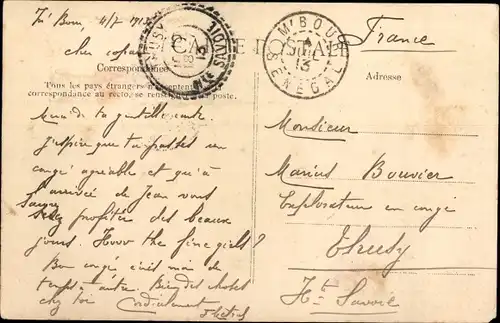 4/7 1913
Cher copain
CARTE POSTALE
M'BOUR
SENEGAL
13
France
Correspondance
Adresse
Tous les pays étrangers n'acceptent pas la
correspondance au recto, se renseigner à la poste.
Merci de ta
J'espère que tu passes un
congé agréable et qu'à
l'arrivée de Jean vous
saurez profiter des beaux
jours. How the fine girls?
Bon congé écris moi de
temps à autre. Bien des choses
chez toi Cordialement
Monsieur
Marius Bouvier
Explorateur en congé
Thusy
Hte Savoie